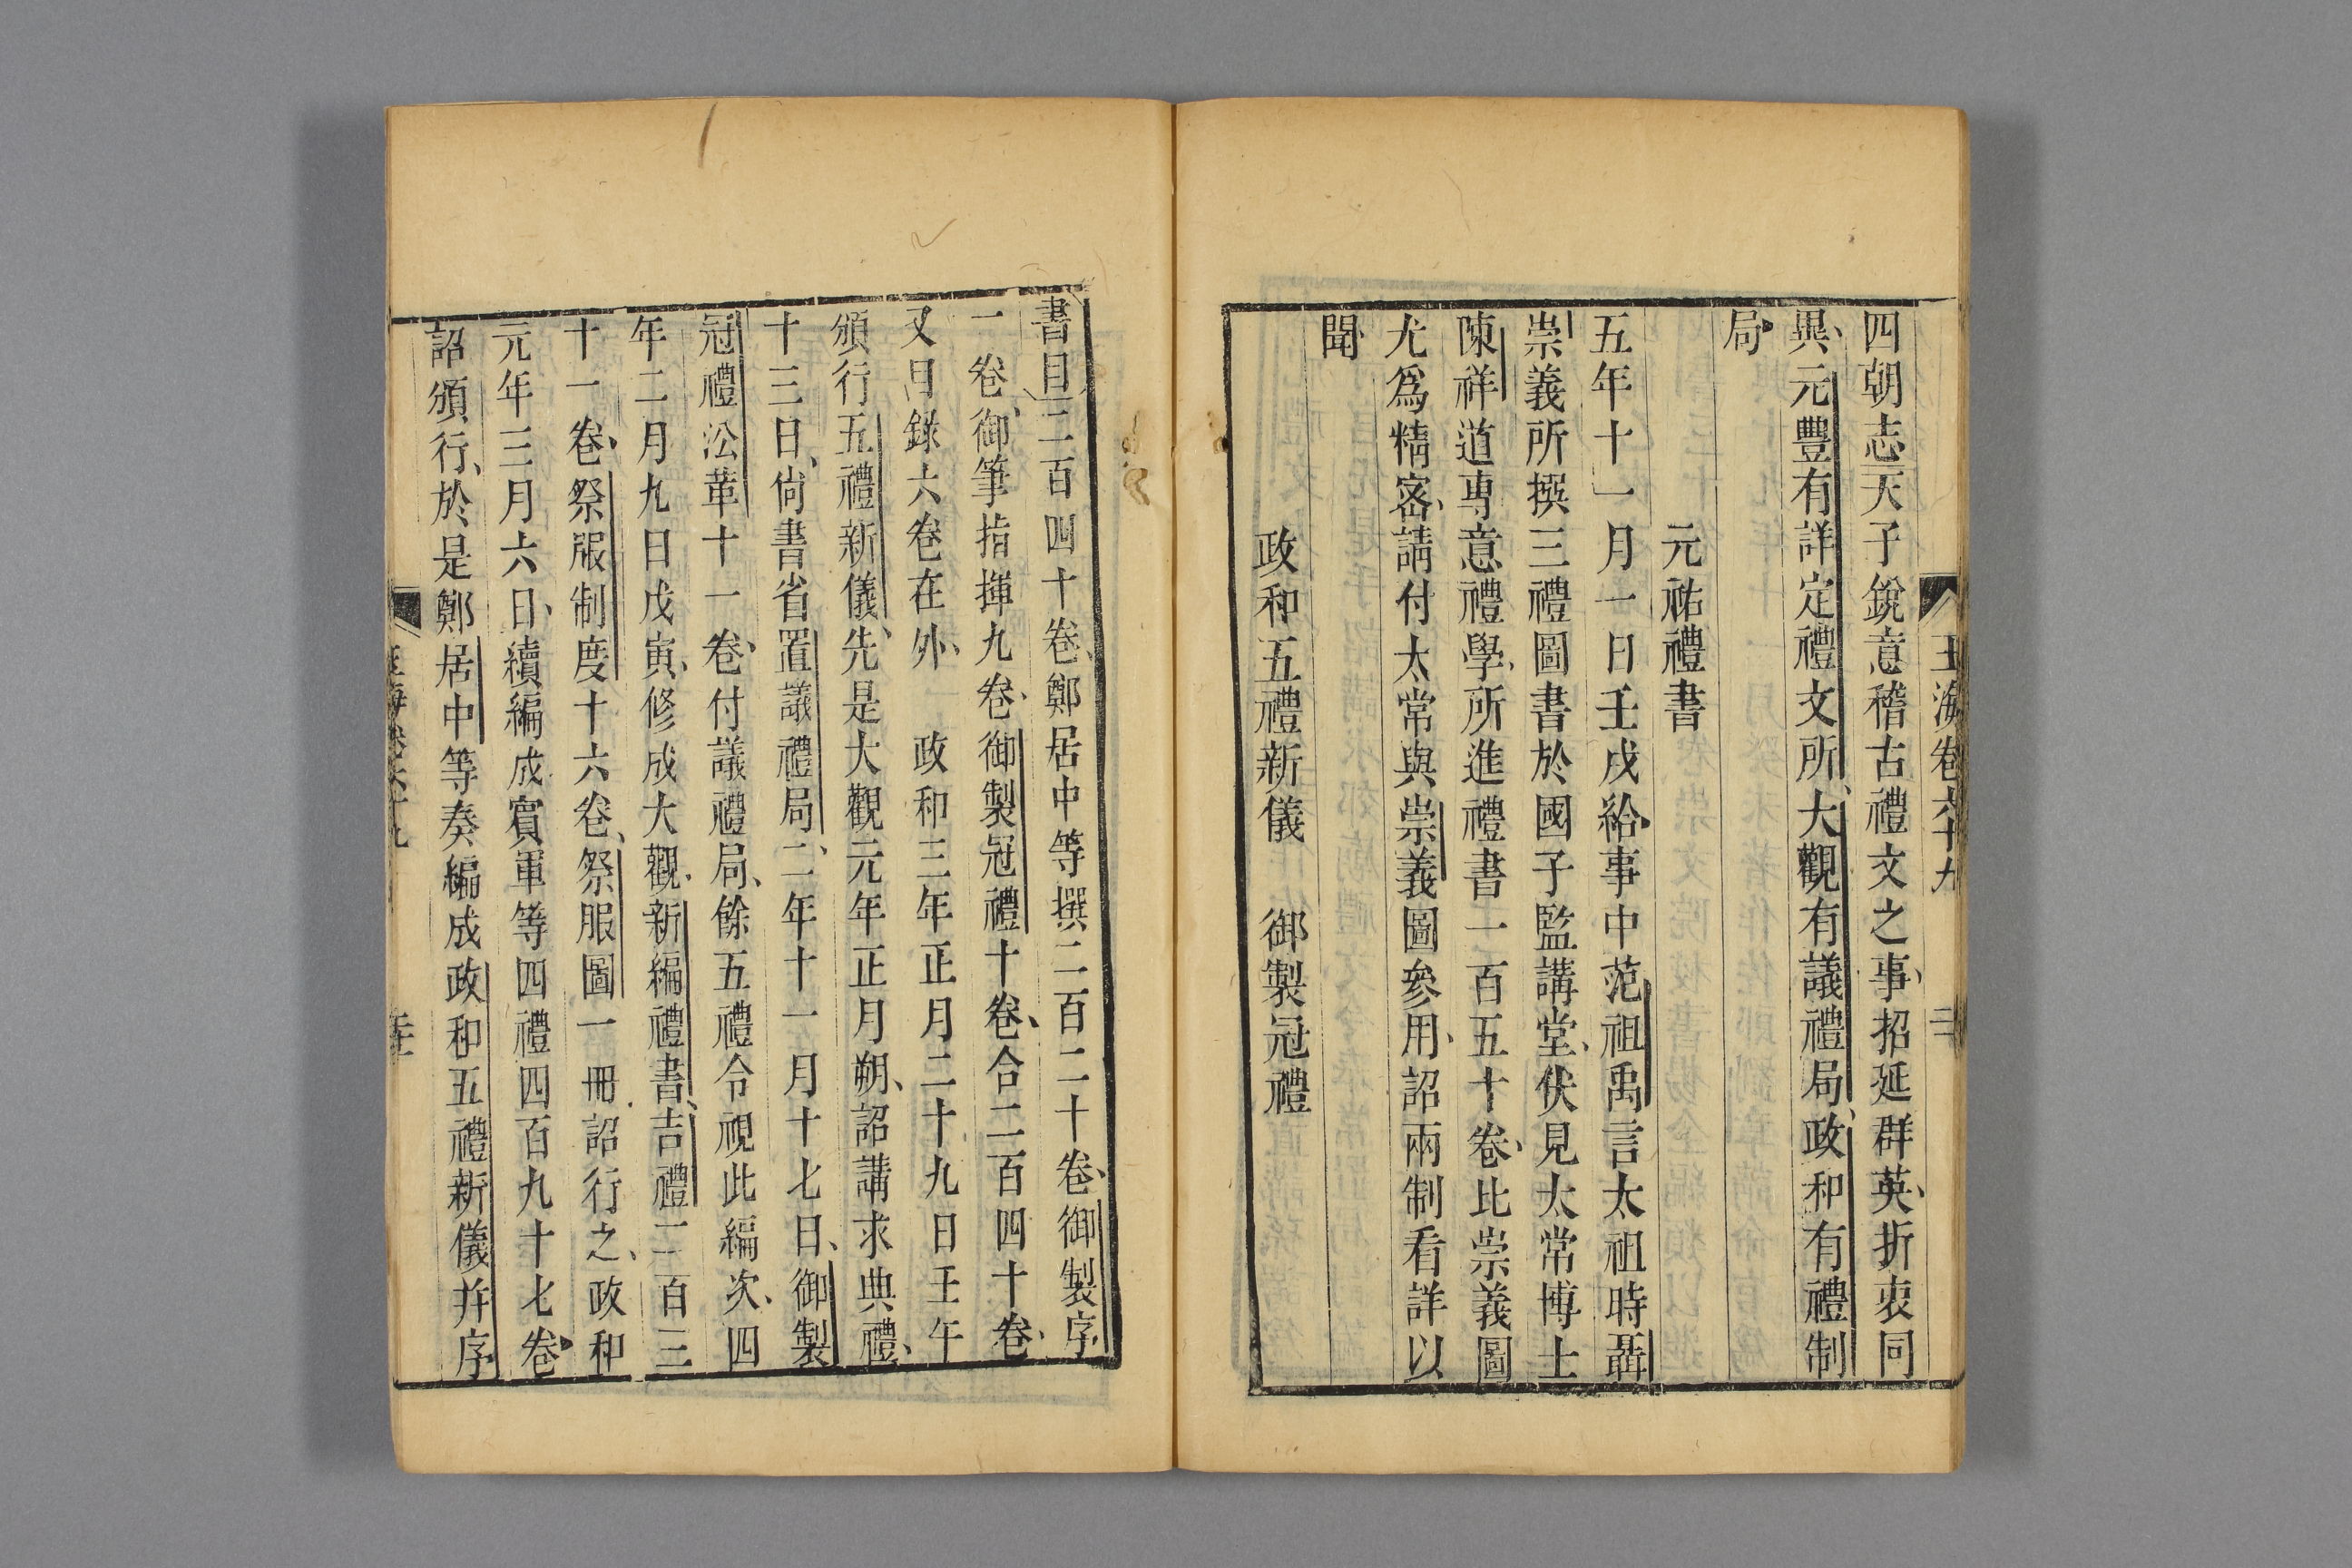 玉海卷六十九 二十
四朝志天子銳意稽古禮文之事招延群英折衷同
異元豐有詳定禮文所大觀有議禮局政和有禮制
局
元祐禮書
五年十一月一日壬戌給事中范祖禹言太祖時聶
崇義所撰三禮圖書於國子監講堂伏見太常博士
陳祥道專意禮學所進禮書一百五十卷比崇義圖
尤爲精密請付太常與崇義圖參用詔兩制看詳以
聞
政和五禮新儀 御製冠禮
書目二百四十卷鄭居中等撰二百二十卷御製序
一卷御筆指揮九卷御製冠禮十卷合二百四十卷
又目錄六卷在外 政和三年正月二十九日壬午
頒行五禮新儀先是大觀元年正月朔詔講求典禮
十三日尙書省置議禮局二年十一月十七日御製
冠禮沿革十一卷付議禮局餘五禮令視此編次四
年二月九日戊寅修成大觀新編禮書吉禮二百三
十一卷祭服制度十六卷祭服圖一冊詔行之政和
元年三月六日續編成賓軍等四禮四百九十七卷
詔頒行於是鄭居中等奏編成政和五禮新儀幷序
海卷六十九